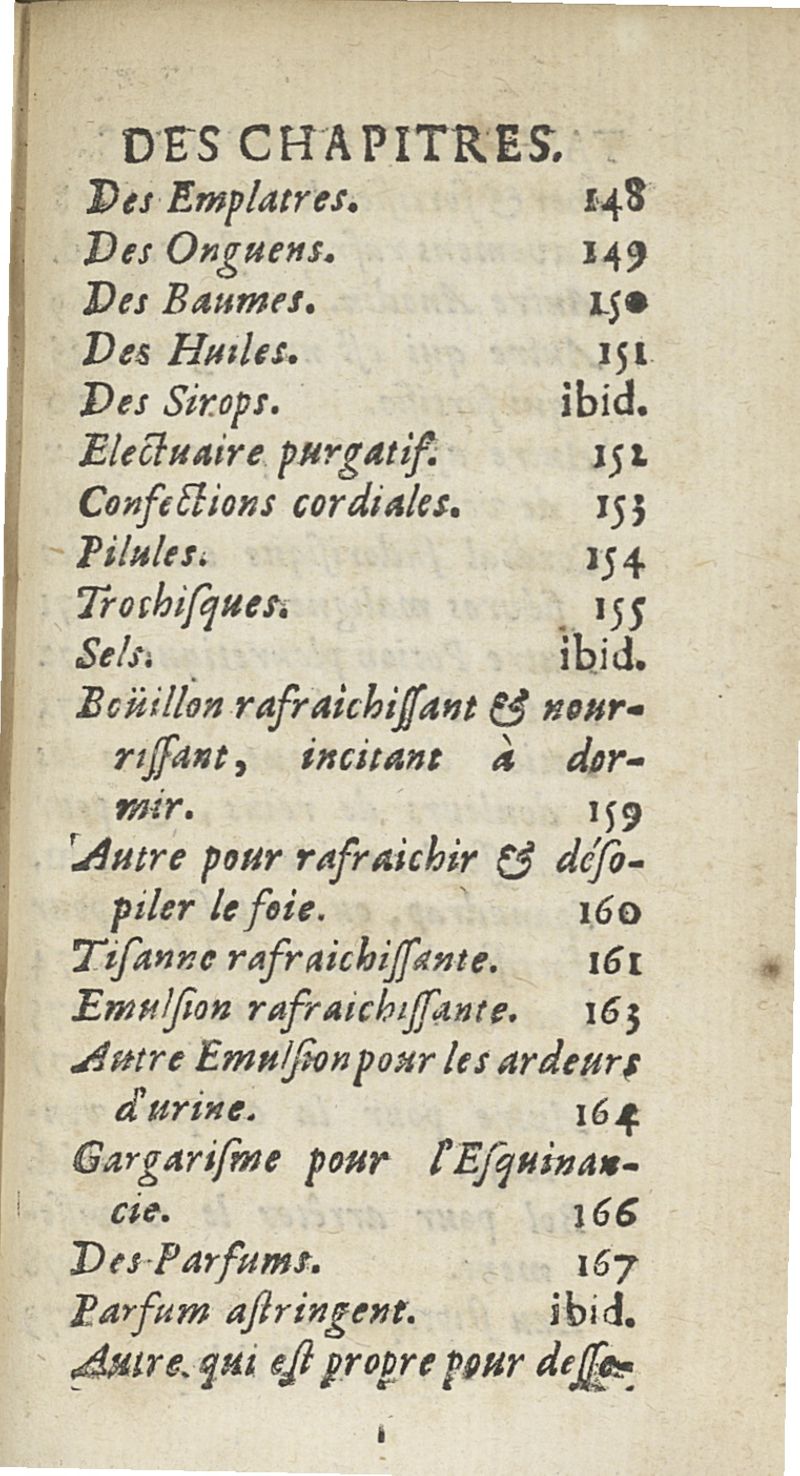 DES CHAPITRES.
Des Emplatres. 148
Des Onguens. 149
Des Baumes. 150
Des Huiles. 151
Des Sirops. ibid.
Electuaire purgatif. 152
Confections cordiales. 153
Pilules. 154
Trochiſques. 155
Sels. ibid.
Boüillon rafraichiſſant & nour-
riſſant, incitant à dor-
mir. 159
Autre pour rafraichir & déſo-
piler le foie. 160
Tiſanne rafraichiſſante. 161
Emulſion rafraichiſſante. 163
Autre Emulſion pour les ardeurs
d'urine. 164
Gargariſme pour l'Eſquinan-
cie. 166
Des Parfums. 167
Parfum aſtringent. ibid.
Autre qui eſt propre pour deſſe-